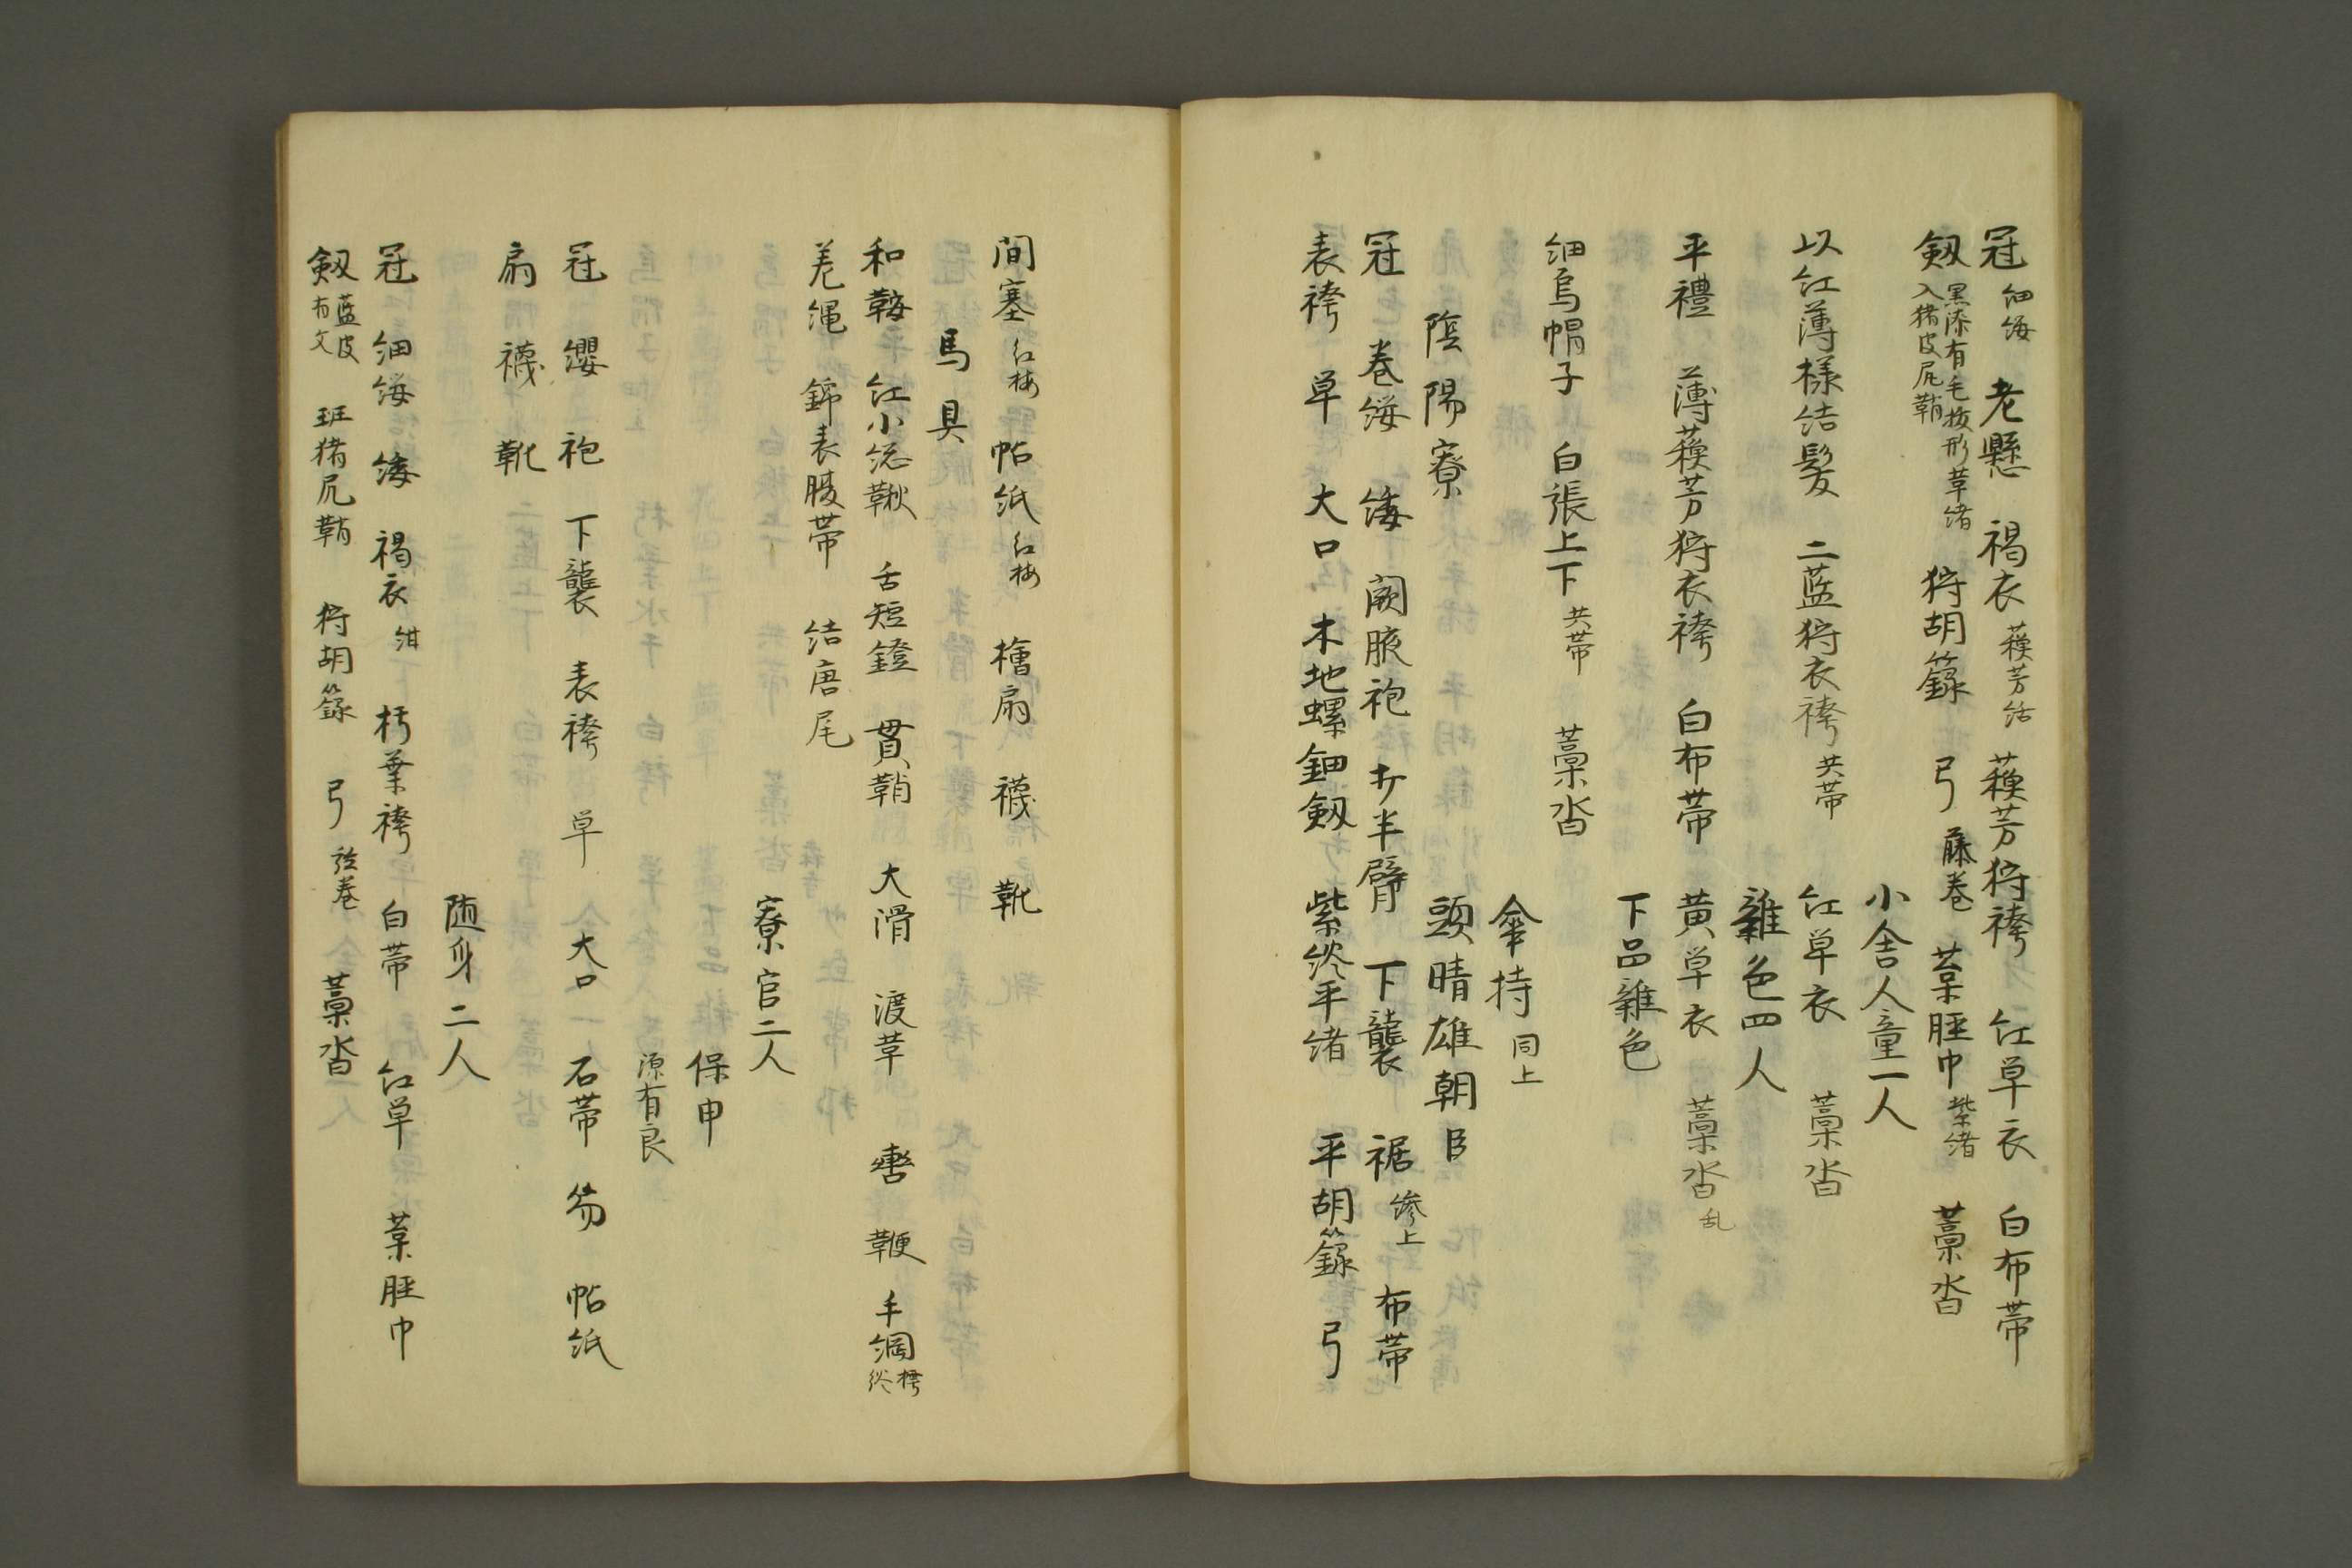 冠 細緌 老懸 褐衣 蘓芳結 蘓芳狩袴 紅単衣 白布帯
剱 黒漆有毛抜形革緒 入猪皮尻鞘 狩胡籙 弓 藤巻 葉脛巾 紫緒 藁沓
小舎人童一人
以紅薄様結髪 二藍狩衣袴 共帯 紅単衣 藁沓
雑色四人
平禮 薄蘓芳狩衣袴 白布帯 黄単衣 藁沓 乱
下品雑色
細烏帽子 白張上下 共帯 藁沓
傘持 同上
陰陽寮 頭晴雄朝臣
冠 巻緌 緌 闕腋袍 打半臂 下襲 裾 縿上 布帯
表袴 単 大口 木地螺鈿剱 紫終平緒 平胡籙 弓
間塞 紅梅 帖紙 紅梅 檜扇 襪 靴
馬具
和鞍 紅小総鞦 舌短鐙 貫鞘 大滑 渡草 轡 鞭 手綱 樗終
差縄 錦表腹帯 結唐尾
寮官二人
保申
源有良
冠 纓 袍 下襲 表袴 単 大口 石帯 笏 帖紙
扇 襪 靴
随身二人
冠 細緌 緌 褐衣 紺 朽葉袴 白帯 紅単 葉脛巾
剱 藍皮有文 斑猪尻鞘 狩胡籙 弓 弦巻 藁沓